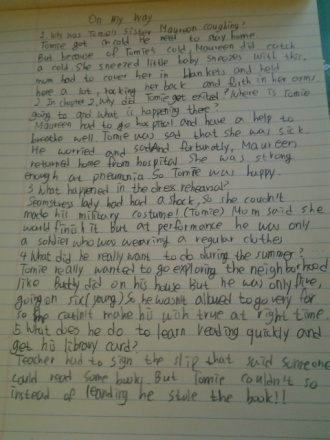 On my way
1 Why was Tomie's sister Maureen coughing?
Tomie got a cold. He need to stay home
But because of Tomie's cold, Maureen did catch
a cold. She sneezed little baby sneezes with this,
mum had to cover her in blankets and held
here a lot, rocking her back and fith in her arms
2 In chapter 2, why did Tomie get exited? Where is Tomie
going to and what is happening there?
Maureen had to go hospital and have a help to
breathe well Tomie was sad that she was sick.
He worried and sad and fortunatly, Maureen
returned home from hospital She was strong
enough at pneumnia So Tomie was happy.
3 What happened in the dress rehearsal?
Seamstress lady had had a shock, so she couldn't
made his military costume! (Tomie) Mom said she
would finish it But at performance he was only
a soldier who was wearing a regular clothes
4 What did he really want to do during the summer?
Tomie really wanted to go exploring the neighborhood
like Buddy did on his house But he was only five,
going on six (young) So he wasn't allowed to go very far
so he couldn't make his wish true at right time.
5 What does he do to learn reading quickly and
get his library card?
Teacher had to sign the slip that said someone
could read some books. But Tomie couldn't so
instead of learning he stole the book!!